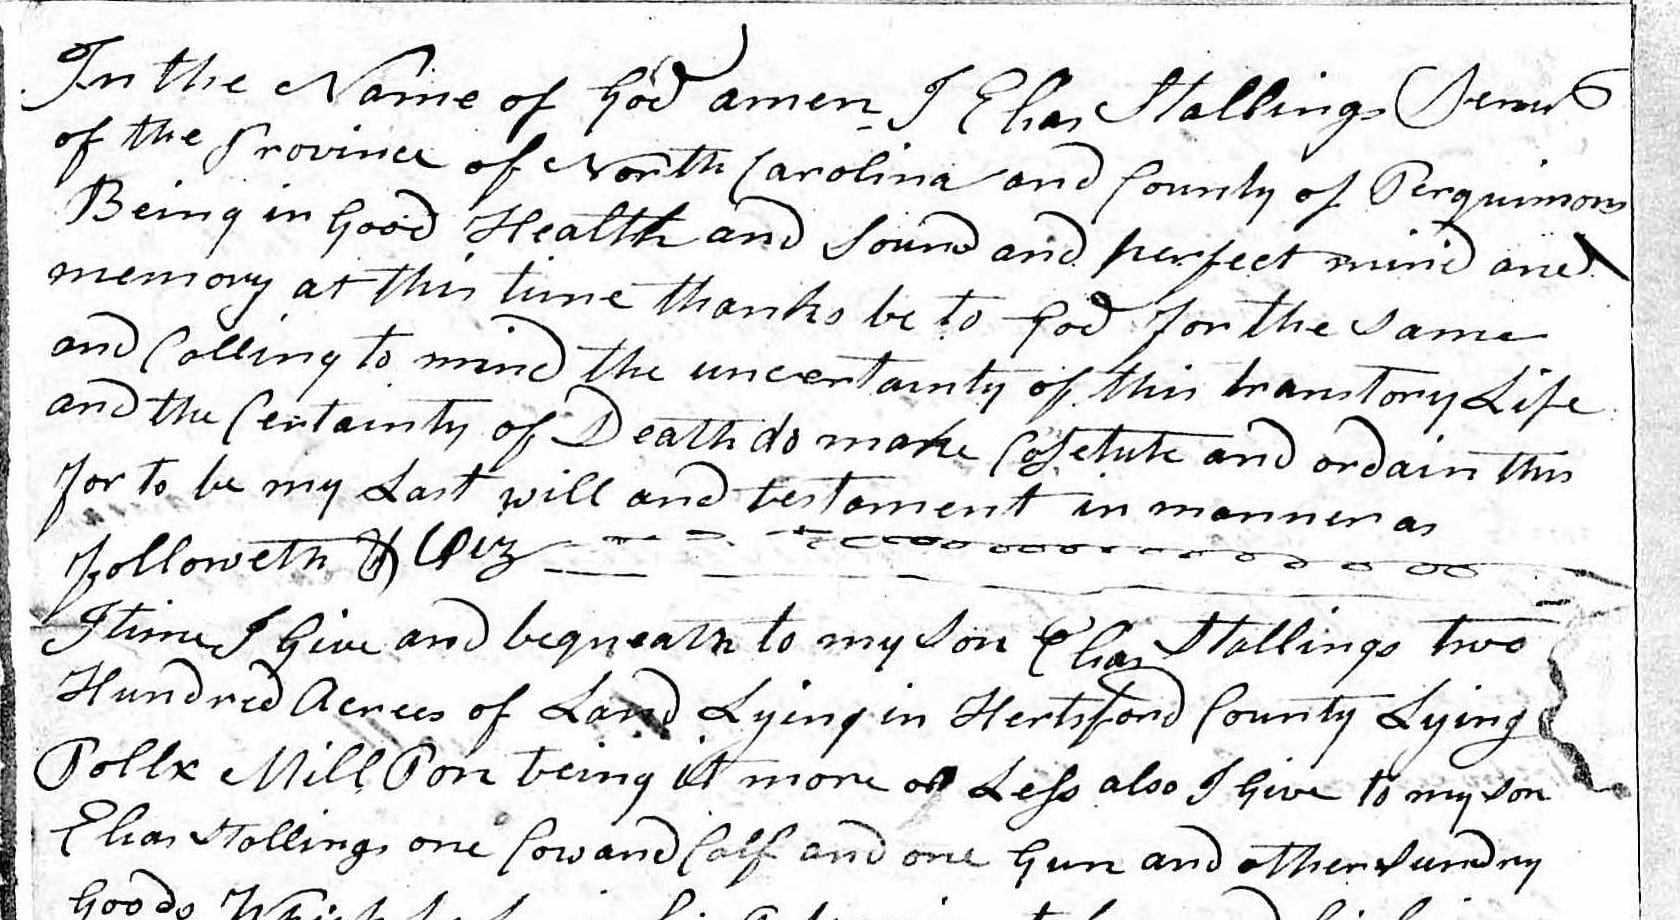 In the Name of God amen I Elias Stallings Senr
of the Province of North Carolina and County of Perquimons
Being in Good Health and Sound and perfect mind and
memory at this time thanks be to God for the Same
and Calling to mind the uncertainty of this transtory Life
and the Certainty of Death do make Cosetute and ordain this
for to be my Last will and testament in manner as
followeth Viz
Itime I Give and bequeath to my Son Elias Stallings two
Hundred Acrees of Land Lying in Hertsford County Lying
Pollx Mill Pon being it more or Less also I Give to my Son
Elias Stallings one Cow and Calf and one Gun and other Sundry
Goods Which he